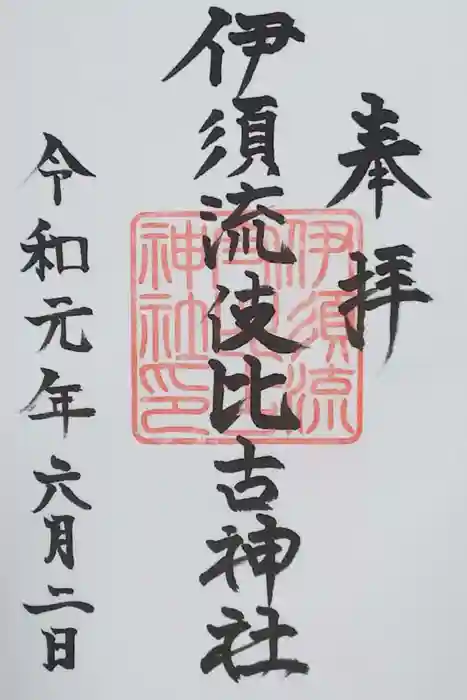 奉拝
伊須流伎比古神社
伊須流
神社印
令和元年六月二日